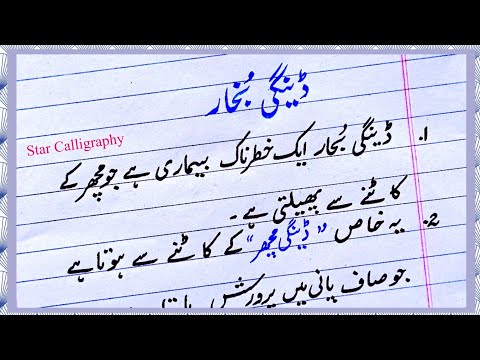 ڈینگی بُخار
Star Calligraphy
1. ڈینگی بُخار ایک خطرناک بیماری ہے جو مچھر کے
کاٹنے سے پھیلتی ہے۔
2. یہ خاص "ڈینگی مچھر" کے کاٹنے سے ہوتا ہے
جو صاف پانی میں پرورش